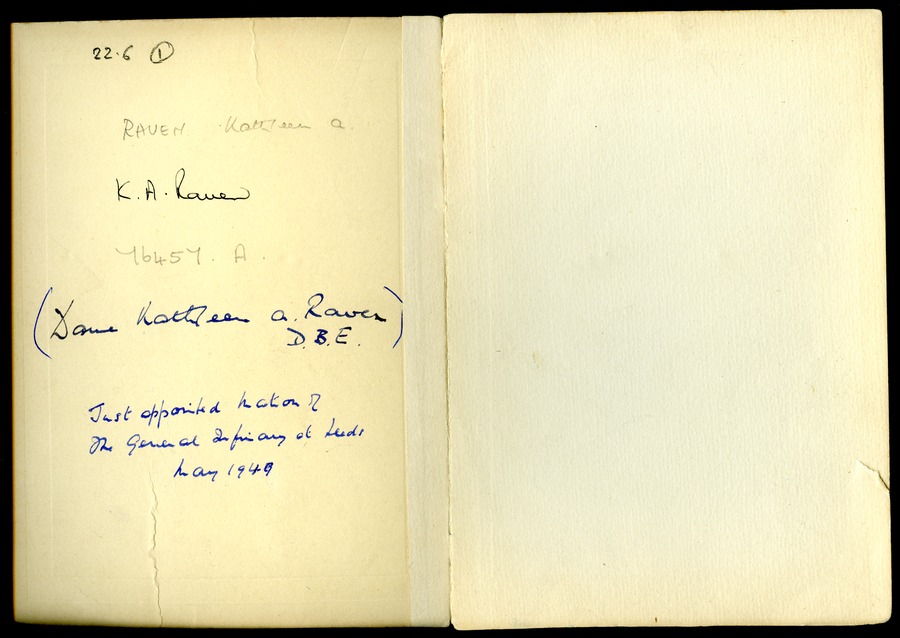 22.6 ①
RAVEN Kathleen a.
K. A. Raven
76457. A.
(Dame Kathleen a. Raven)
D.B.E.
Just appointed Matron of
The General Infirmary at Leeds
May 1949